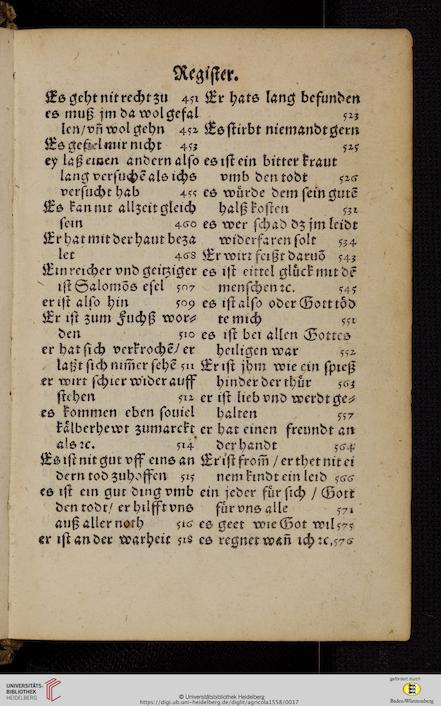 Register.
Es geht nit recht zu 451
es muß jm da wol gefal
len/vñ wol gehn 452
Es gefiel mir nicht 453
ey laß einen andern also
lang versuchē als ichs
versucht hab 455
Es kan nit allzeit gleich
sein 460
Er hat mit der haut beza
let 468
Ein reicher vnd geitziger
ist Salomōs esel 507
er ist also hin 509
Er ist zum Fuchß wor⸗
den 510
er hat sich verkrochē/ er
laßt sich nim̄er sehē 511
er wirt schier wider auff
stehen 512
es kommen eben souiel
kälberhewt zumarckt
als ꝛc. 514
Es ist nit gut vff eins an
dern tod zuhoffen 515
es ist ein gut ding vmb
den todt/ er hilfft vns
auß aller noth 516
er ist an der warheit 518
Er hats lang befunden
523
Es stirbt niemandt gern
525
es ist ein bitter kraut
vmb den todt 526
es würde dem sein gutē
halß kosten 531
es wer schad dz jm leidt
widerfaren solt 534
Er wirt feißt daruō 543
es ist eittel glück mit dē
menschen ꝛc. 545
es ist also oder Gott töd
te mich 551
es ist bei allen Gottes
heiligen war 552
Er ist jhm wie ein spieß
hinder der thür 563
er ist lieb vnd werdt ge⸗
halten 557
er hat einen freundt an
der handt 564
Er ist from̄ / er thet nit ei
nem kindt ein leid 566
ein jeder für sich / Gott
für vns alle 571
es geet wie Got wil 575
es regnet wañ ich ꝛc. 576
UNIVERSITÄTS-
BIBLIOTHEK
HEIDELBERG
© Universitätsbibliothek Heidelberg
https://digi.ub.uni-heidelberg.de/diglit/agricola1558/0017
gefördert durch
Baden-Württemberg